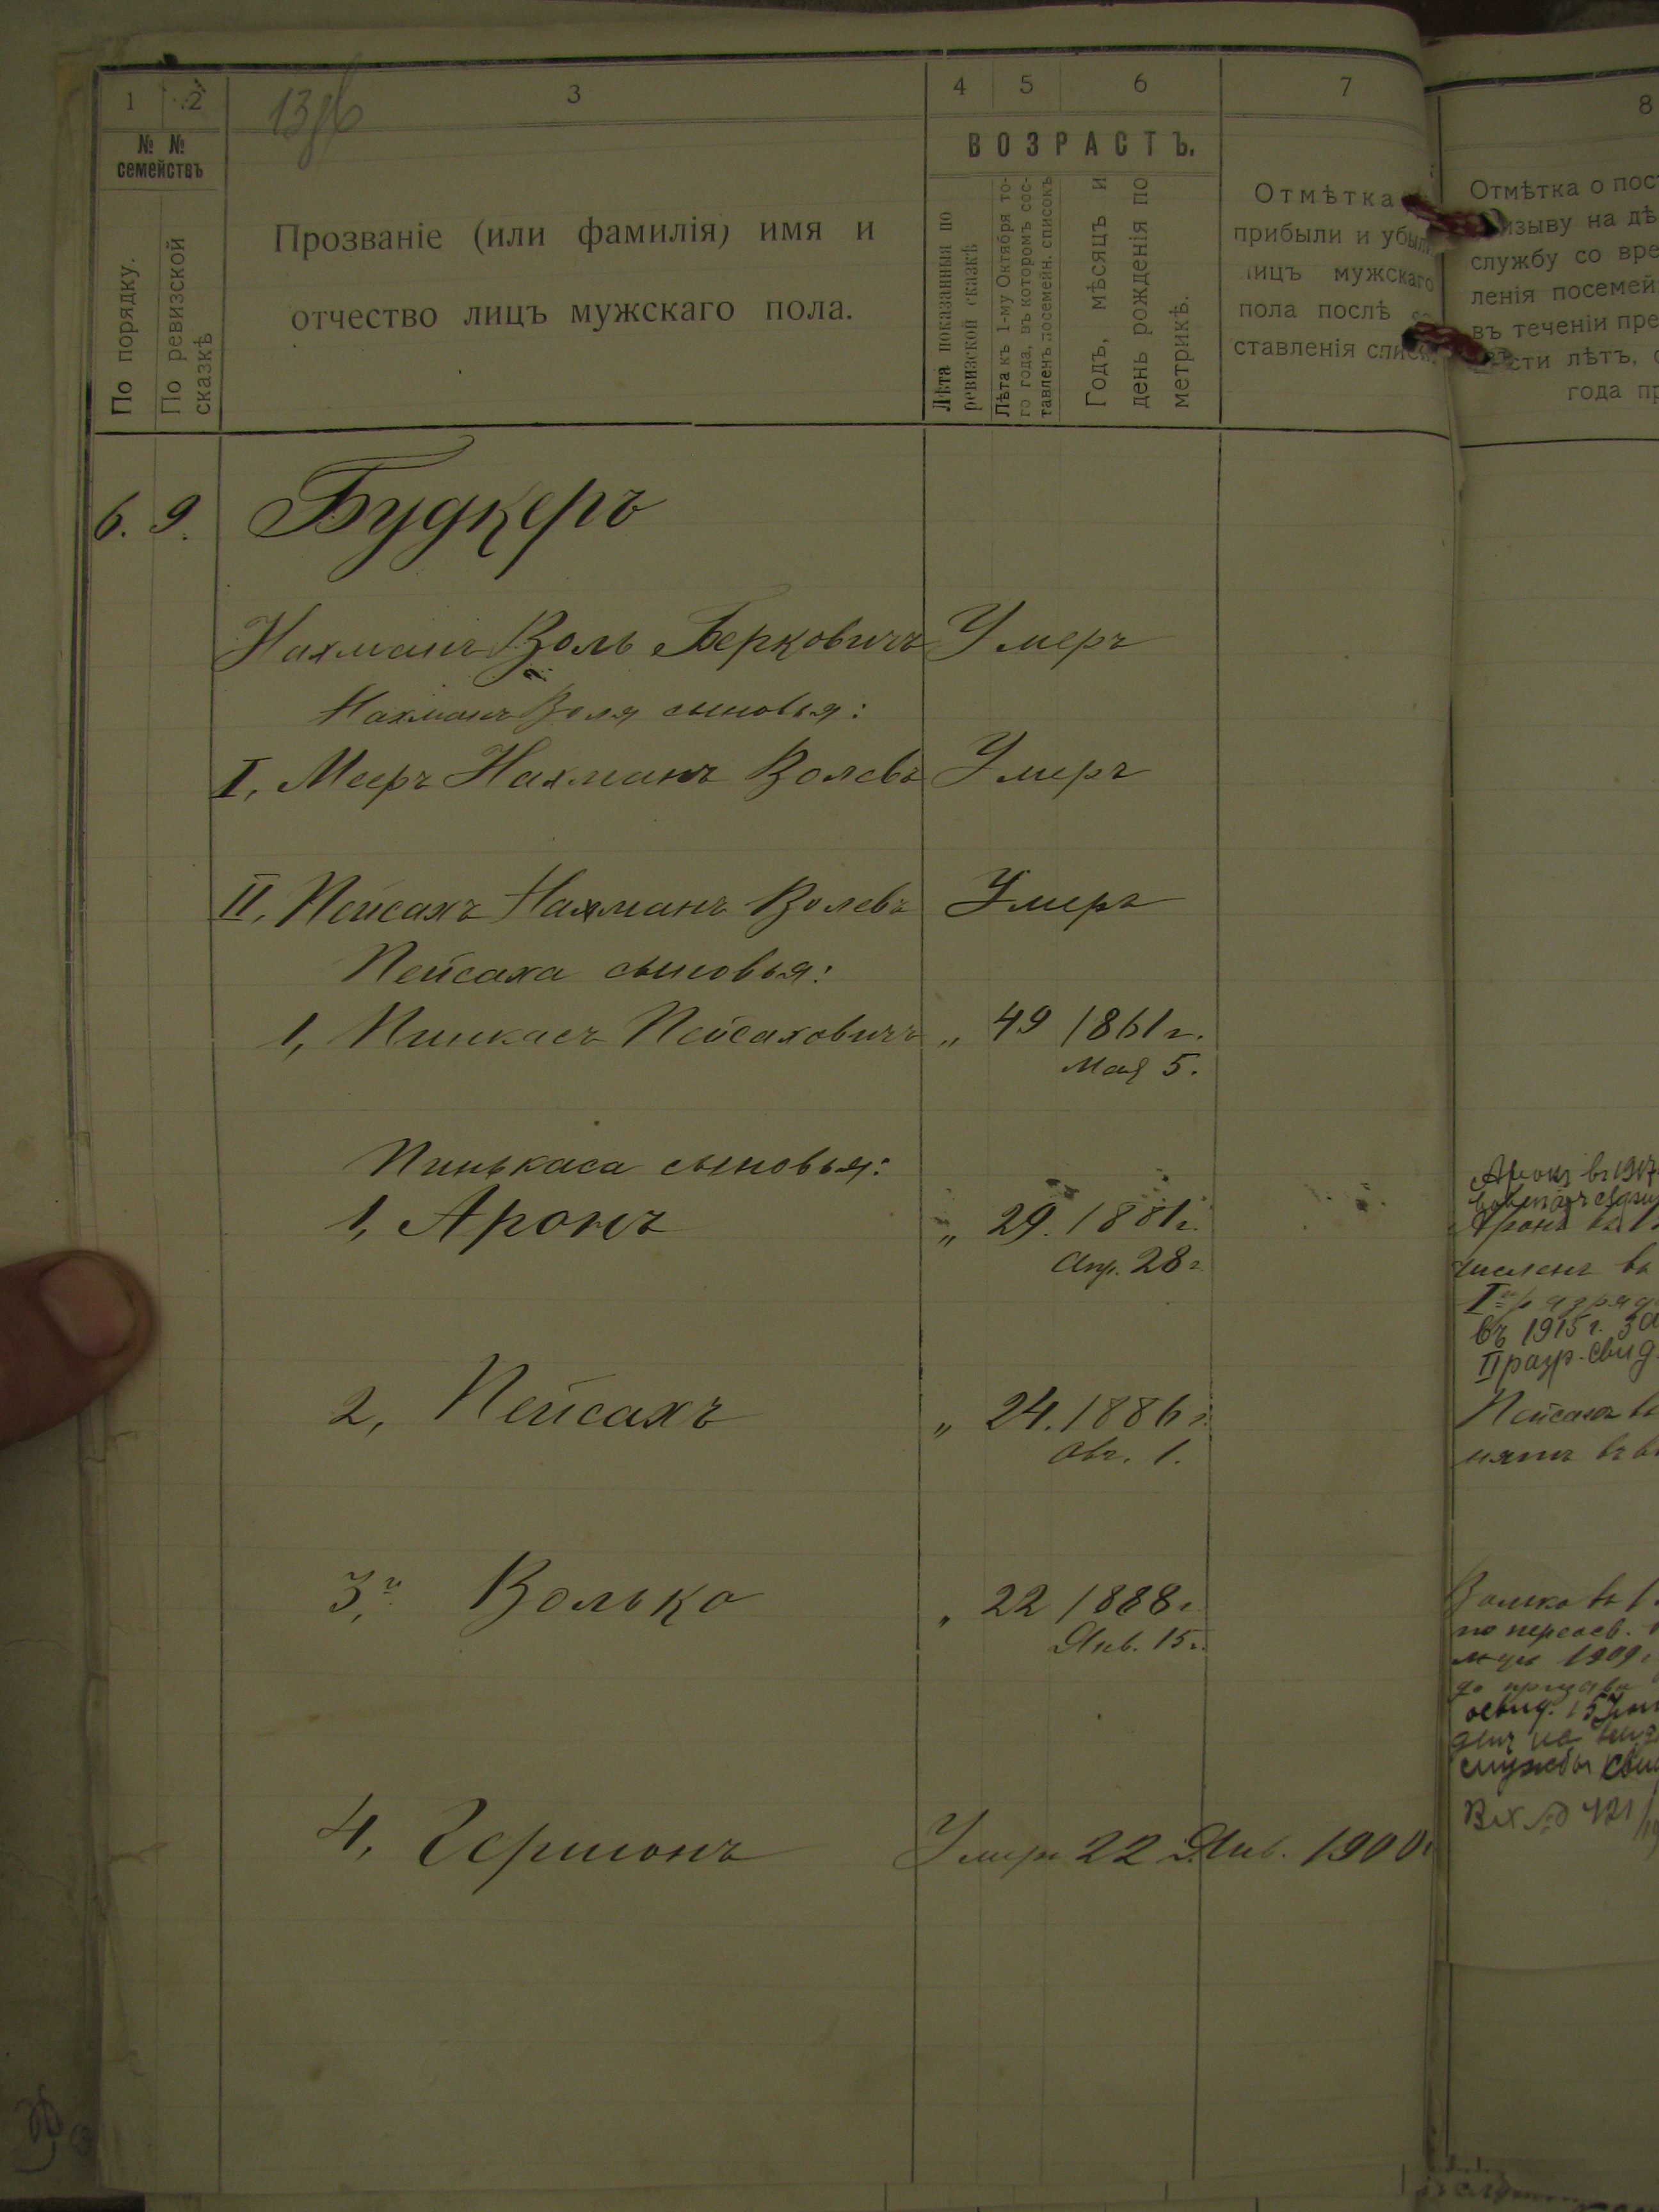 1 2 3 4 5 6 7 8
№ № семействъ
По порядку.
По ревизской сказкѣ
Прозваніе (или фамилія) имя и
отчество лицъ мужскаго пола.
ВОЗРАСТЪ.
Лѣта показанныя по
ревизской сказкѣ
Лѣта къ 1-му Октября то-
го года, въ которомъ сос-
тавленъ посемейн. списокъ
Годъ, мѣсяцъ и
день рожденія по
метрикѣ.
Отмѣтка
прибыли и убыли
лицъ мужскаго
пола послѣ
ставленія списк
Отмѣтка о пос
изыву на дѣ
службу со вре
ленія посемей
въ теченіи пре
сти лѣтъ, с
года пр
6. 9. Будкеръ
Нахманъ Воль Берковичъ Умеръ
Нахманъ Воля сыновья:
I, Мееръ Нахманъ Волевъ Умеръ
II, Пейсахъ Нахманъ Волевъ Умеръ
Пейсаха сыновья:
1, Пинкасъ Пейсаховичъ „ 49 1861 г.
Мая 5.
Пинькаса сыновья:
1, Аронъ „ 29. 1881 г.
Апр. 28 г.
2, Пейсахъ „ 24. 1886 г.
Авг. 1.
3, Волько „ 22 1888 г.
Янв. 15 г.
4, Гершонъ Умеръ 22 Янв. 1900 г.
Аронъ въ 1917
Аронъ въ 1
численъ въ
I разряда
въ 1915 г. за
II разр. свид
Пейсахъ въ
нятъ въ в
Волько въ 1
по переосв.
1909 г.
до призыва
службы
Вх № 421